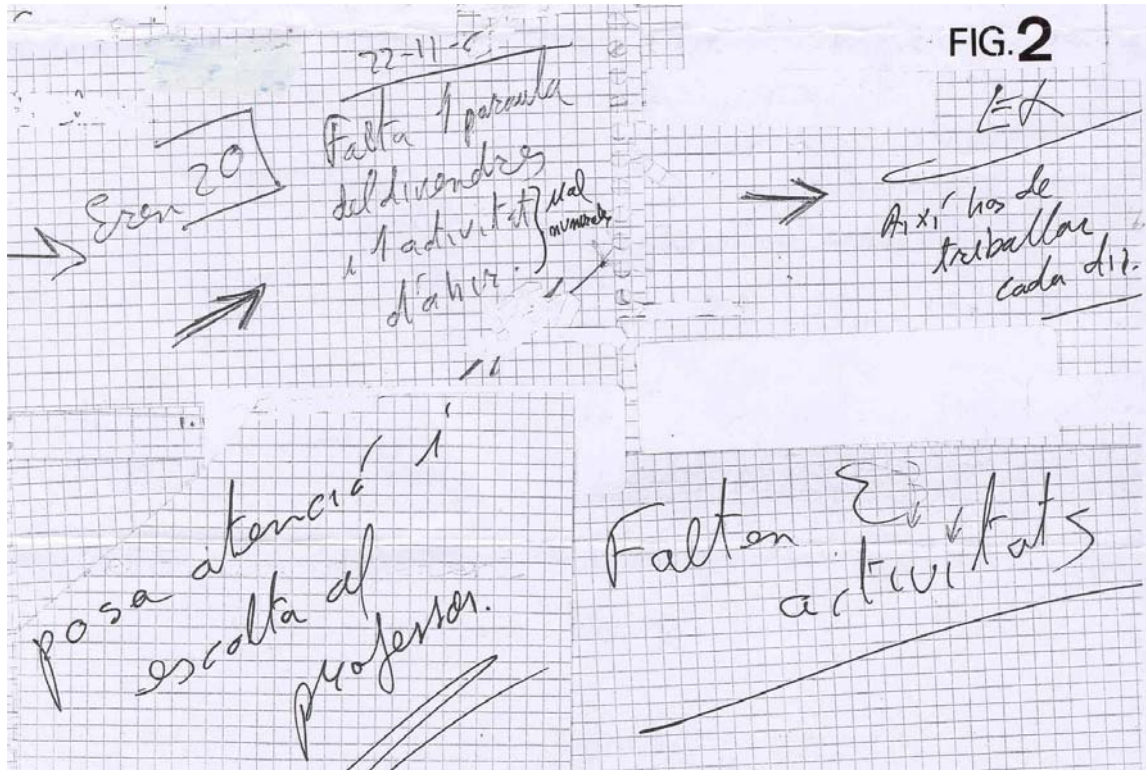 FIG.2
22-11-
Eren 20
Falta 1 paraula
del divendres
i 1 activitat } Mal
numerades
d'ahir.
Així has de
treballar
cada dia.
posa atenció i
escolta al
professor.
Falten
activitats